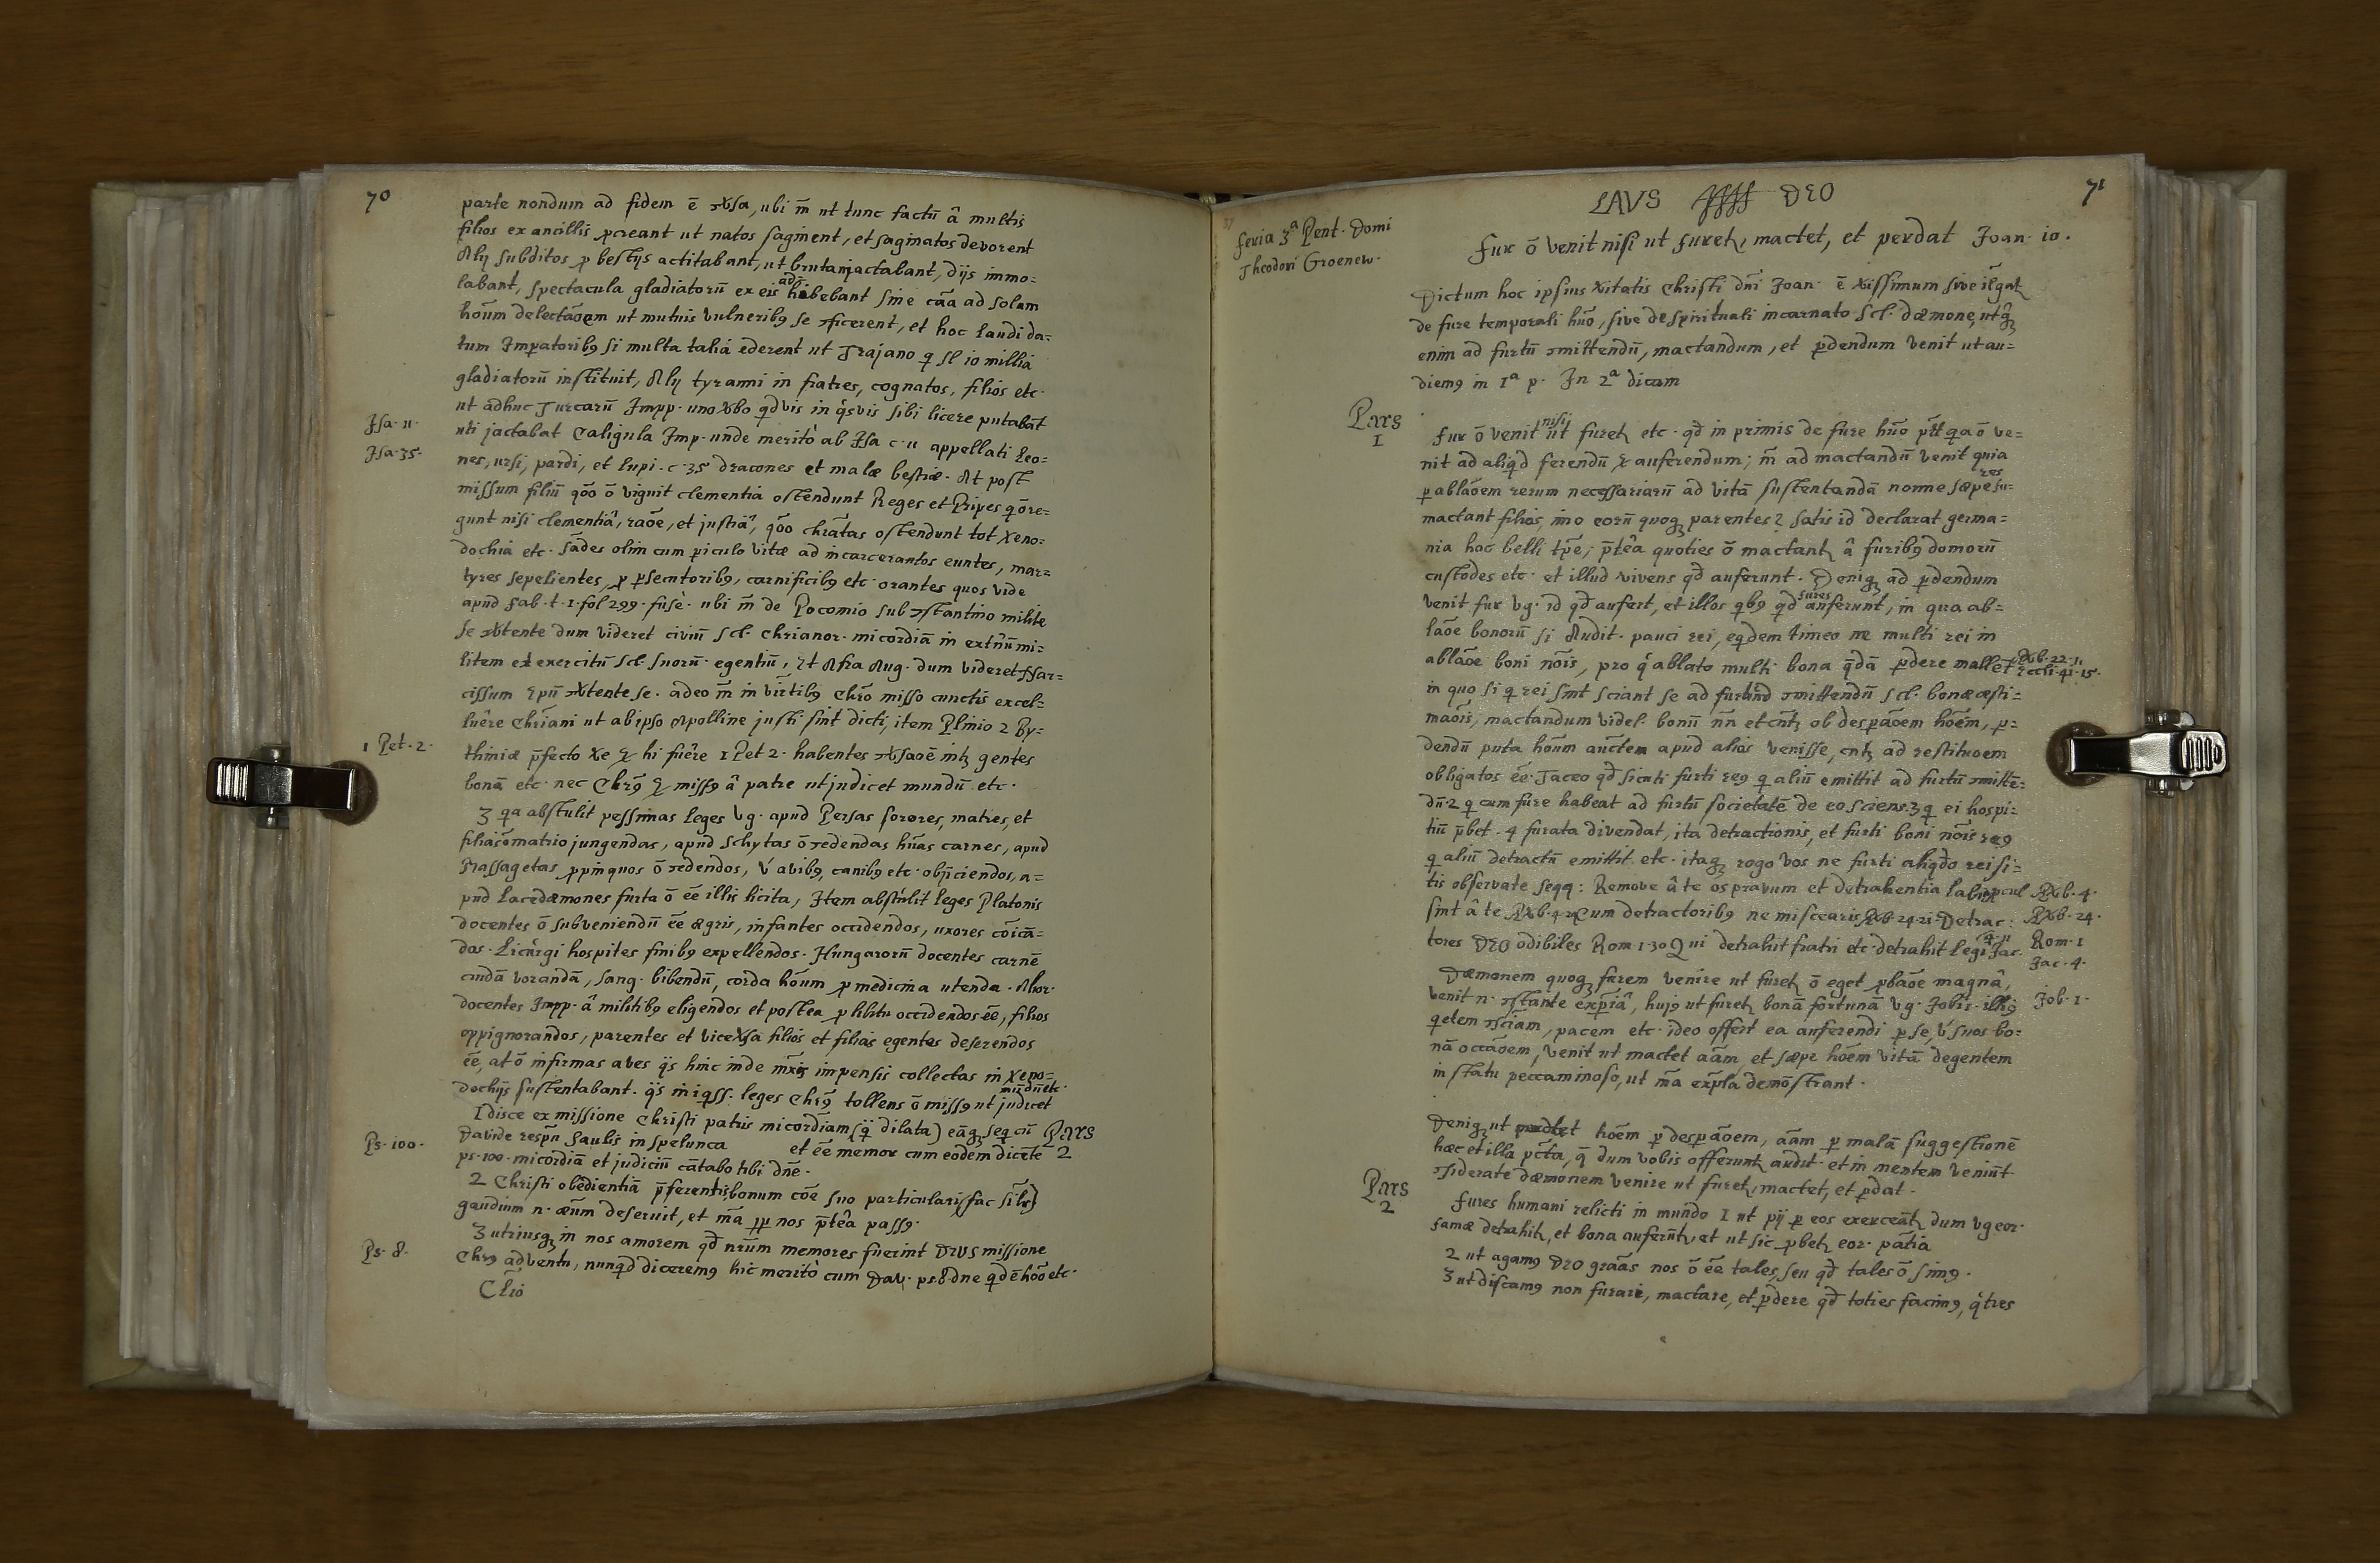 70
parte nondum ad fidem ē ꝯversa, ubi m̄ ut tunc factū â multis
filios ex ancillis pcreant ut natos saginent, et saginatos devorent
Alij subditos p bestijs actitabant, ut bruta mactabant, dijs immo=
labant, spectacula gladiatorū ex eis adhibebant sine cāa ad solam
hoūm delectāoem ut mutuis vulneribꝰ se ꝯficerent, et hoc laudi da=
tum Imperatoribꝰ si multa talia ederent ut Trajano q sl 10 millia
gladiatorū instituit, Alij tyranni in fratres, cognatos, filios etc.
ut adhuc Turcarū Impp. uno verbo qdvis in qsvis sibi licere putabāt
Isa. 11.
uti jactabat Caligula Imp. unde meritò ab Isa c. 11 appellati Leo=
Isa. 35.
nes, ursi, pardi, et lupi. c. 35 dracones et malæ bestiæ. At post
missum filiū qōo ō viguit clementia ostendunt Reges et Pripes q ō re=
gunt nisi clementiâ, raōe, et justiâ, qōo chrātas ostendunt tot Xeno=
dochia etc. sādes olim cum piculo vitæ ad incarceratos euntes, mar=
tyres sepelientes, p psecutoribꝰ, carnificibꝰ etc. orantes quos vide
apud Fab. t. 1. fol 299. fusè. ubi m̄ de Pocomio sub ꝯstantino milite
se ꝯvertente dum videret civiū scl. Chrianor. micordiā in extrēū mi=
litem et exercitū scl. suorū. egentiū, Et Afra Aug. dum videret Nar=
cissum Epū ꝯvertente se. adeo m̄ in virtibꝰ Chrō misso cunctis excel=
luêre Chriani ut ab ipso Apolline justi sint dicti, item Plinio 2 By=
1 Pet. 2.
thiniæ p̄fecto Xe & hi fuêre 1 Pet 2. habentes ꝯversaoē int gentes
bonā etc. nec Chrꝰ & missꝰ â patre ut judicet mundū etc.
3 qa abstulit pessimas leges vg. apud Persas sorores, matres, et
filias matrio jungendas, apud Schytas ō edendas hūas carnes, apud
Massagetas ppinquos ō edendos, v̀ avibꝰ, canibꝰ etc. objiciendos, a=
pud Lacedæmones furta ō ēē illis licita, Item abstulit leges Platonis
docentes ō subveniendū ēē ægris, infantes occidendos, uxores cōicā=
das. Licurgi hospites finibꝰ expellendos. Hungarorū docentes carnē
crudā vorandā, sang. bibendū, corda hoūm p medicina utenda. Alior.
docentes Impp. â militibꝰ eligendos et postea p libitu occidendos ēē, filios
oppignorandos, parentes et viceversa filios et filias egentes deserendos
ēē, at ō infirmas aves qs hinc inde mxis impensis collectas in Xeno=
dochijs sustentabant. qs iniqss. leges Chrꝰ tollens ō missꝰ ut judicet mūdū etc.
Pars 2
1 disce ex missione Christi patris micordiam (q dilata) eāq seq cū
Davide respū Saulis in spelunca et ēē memor cum eodem dicēte
Ps. 100.
ps. 100. micordiā et judiciū cātabo tibi dn̄e.
2 Christi obedientiā p̄ferentis bonum cōe suo particulari (fac slr)
gaudium n. æūm deseruit, et mā pp nos p̄teâ passꝰ.
3 utriusq in nos amorem qd nrūm memores fuerint DEUS missione
Ps. 8.
Chrꝰ adventu, nunqd diceremꝰ hic meritò cum Dav. ps 8 dne qd ē hōo etc.
Clio
71
LAVS DEO
Feria 3ª Pent. Domi
Theodori Groenew.
Fur ō venit nisi ut furet, mactet, et perdat Joan. 10.
Dictum hoc ipsius veritatis Christi dn̄i Joan. ē verissimum sive
de fure temporali hūo, sive de spirituali incarnato scl. dæmone, utq
enim ad furtū ꝯmittendū, mactandum, et pdendum venit ut au=
diemꝰ in 1ª p. In 2ª dicam
Pars 1
Fur ō venit nisi ut furet etc. qd in primis de fure hūo qa ō ve=
nit ad aliqd ferendū & auferendum; m̄ ad mactandū venit quia
p ablāoem rerum necessariarū ad vitā sustentandā nonne sæpe fures
mactant filios, imo eorū quoq parentes? satis id declarat germa=
nia hoc belli tp̄e; p̄teâ quoties ō mactant â furibꝰ domorū
custodes etc. et illud vivens qd auferunt. Deniq ad pdendum
venit fur vg. id qd aufert, et illos qbꝰ qd fures auferunt, in qua ab=
lāoe bonorū si Audit. pauci rei, eqdem timeo ne multi rei in
ablāoe boni nōis, pro q ablato multi bona qdā pdere mallet Prob. 22. 11. Eccli. 41. 15.
in quo si q rei sint sciant se ad furtū ꝯmittendū scl. bonæ æsti=
māois, mactandum videl. bonū nn̄ et cnt ob desp̄āoem hōem, p=
dendū puta hoūm auctem apud alios venisse, cnt ad restituoem
obligatos ēē. Taceo qd sicuti furti reꝰ q aliū emittit ad furtū ꝯmittē=
dū. 2 q cum fure habeat ad furtū societatē de eo sciens. 3 q ei hospi=
tiū p̄bet. 4 furata divendat, ita detractionis, et furti boni nōis reꝰ
q aliū detractū emittit etc. itaq rogo vos ne furti aliqdo rei si=
tis observate seqq: Remove â te os pravum et detrahentia labia pcul
Prob. 4.
sint â te Prob. 4. 24 Cum detractoribꝰ ne miscearis Prob. 24. 21. Detrac=
Prob. 24.
tores DEO odibiles Rom. 1. 30 Qui detrahit fratri etc. detrahit legi Jac. 4. 11
Rom. 1
Jac. 4.
Dæmonem quoq furem venire ut furet ō eget pbāoe magnâ,
Job. 1.
venit n. ꝯstante exp̄iâ, hujꝰ ut furet bonā fortunā vg. Jobis. illiꝰ
qetem ꝯsciam, pacem etc. ideo offert ea auferendi p se, v̀ suos bo=
nā occāoem, venit ut mactet aām et sæpe hōem vitā degentem
in statu peccaminoso, ut mā expla demōstrant.
Deniq ut perdat hōem p desp̄āoem, aām p malā suggestionē
hæc et illa pcta, q dum vobis offerunt audit. et in mentem veniūt
ꝯsiderate dæmonem venire ut furet, mactet, et pdat.
Pars 2
Fures humani relicti in mundo 1 ut pij p eos exerceāt, dum vg eor.
famæ detrahit, et bona auferūt, et ut sic pbet eor. patia
2 ut agamꝰ DEO graās nos ō ēē tales, seu qd tales ō simꝰ.
3 ut discamꝰ non furari, mactare, et pdere qd toties facimꝰ, q tres